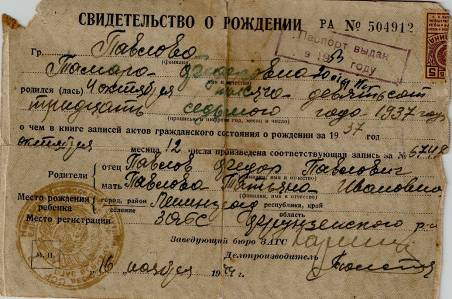 СВИДЕТЕЛЬСТВО О РОЖДЕНИИ РА № 504912
Паспорт выдан
Гр. Павлова
(фамилия)
Тамара
(имя и отчество)
родился (лась) 4 октября тысяча девятьсот
тридцать седьмого года 1937 год
о чем в книге записей актов гражданского состояния о рождении за 1937 год
октября месяца 12 числа произведена соответствующая запись за №
Родители отец Павлов Федор Павлович
(фамилия, имя и отчество)
мать Павлова Татьяна Ивановна
(фамилия, имя и отчество)
Место рождения ребенка город, район Ленинград
селение область республики, край
Место регистрации ЗАГС Фрунзенского р-на
Заведующий бюро ЗАГС
М. П.
Делопроизводитель
16 ноября 19